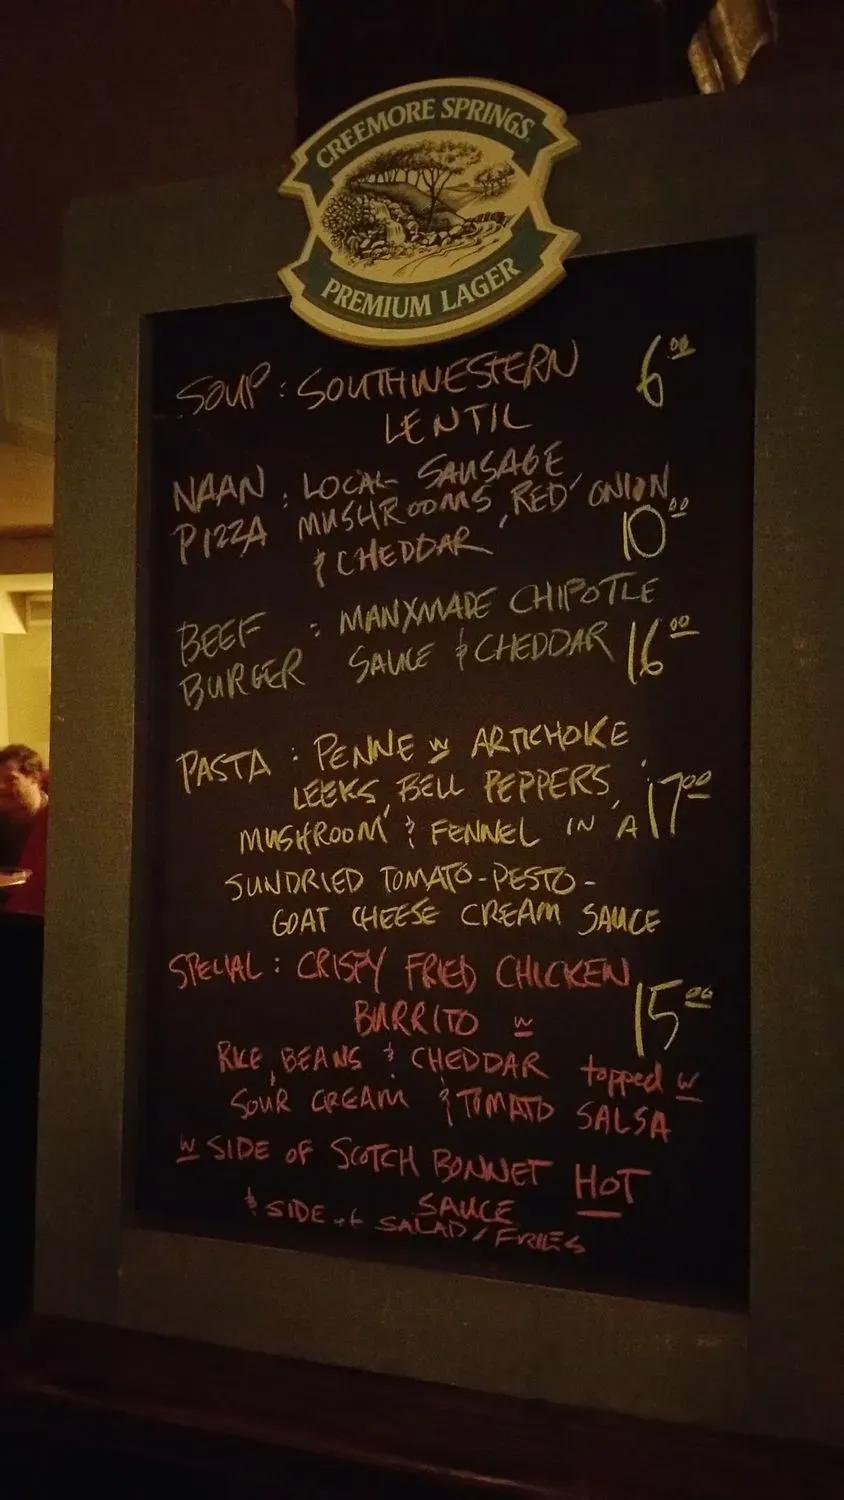 CREEMORE SPRINGS
PREMIUM LAGER
SOUP : SOUTHWESTERN 6.00
LENTIL
NAAN : LOCAL SAUSAGE,
PIZZA MUSHROOMS, RED ONION
& CHEDDAR 10.00
BEEF : MANXMADE CHIPOTLE
BURGER SAUCE & CHEDDAR 16.00
PASTA : PENNE w ARTICHOKE,
LEEKS, BELL PEPPERS, 17.00
MUSHROOM & FENNEL IN A
SUNDRIED TOMATO-PESTO-
GOAT CHEESE CREAM SAUCE
SPECIAL : CRISPY FRIED CHICKEN
BURRITO w 15.00
RICE, BEANS & CHEDDAR topped w
SOUR CREAM & TOMATO SALSA
w SIDE OF SCOTCH BONNET HOT
SAUCE
& SIDE of SALAD/FRIES